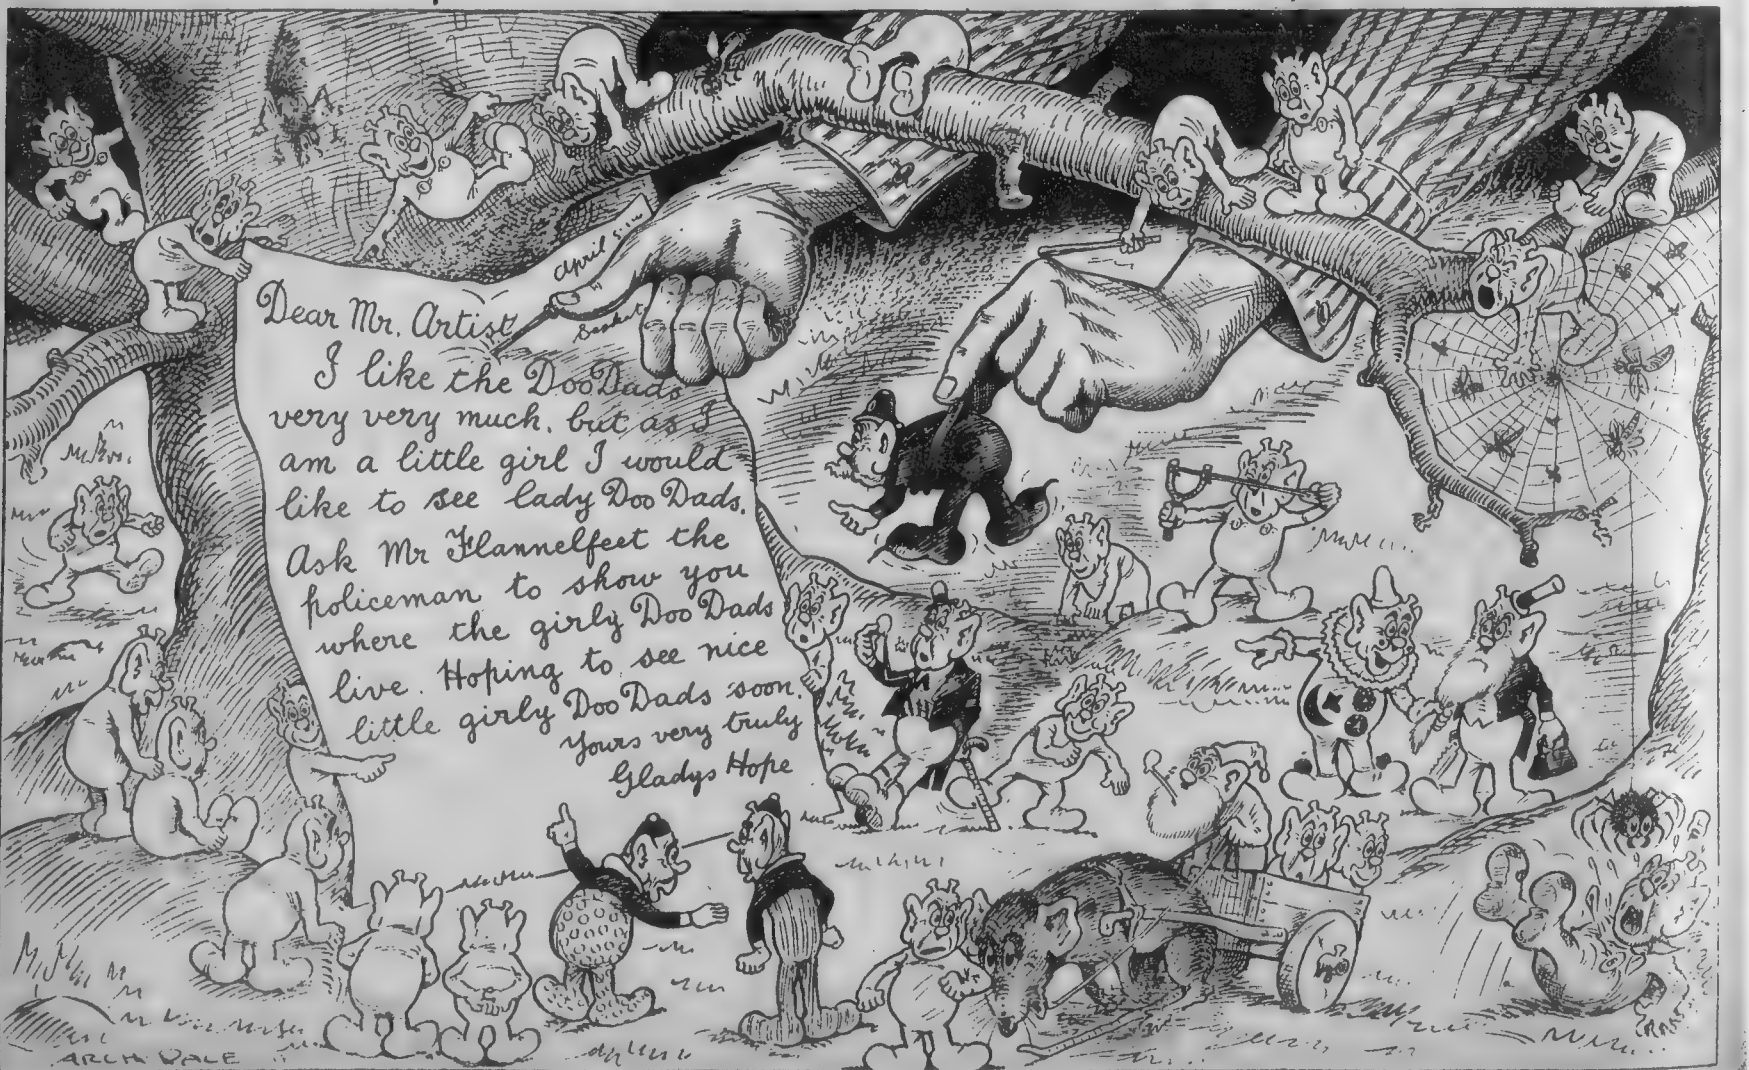 April
Dear Mr. Artist
I like the DooDads
very very much. but as I
am a little girl I would
like to see lady Doo Dads.
Ask Mr Flannelfeet the
policeman to show you
where the girly Doo Dads
live. Hoping to see nice
little girly Doo Dads soon.
Yours very truly
Gladys Hope
ARCH DALE